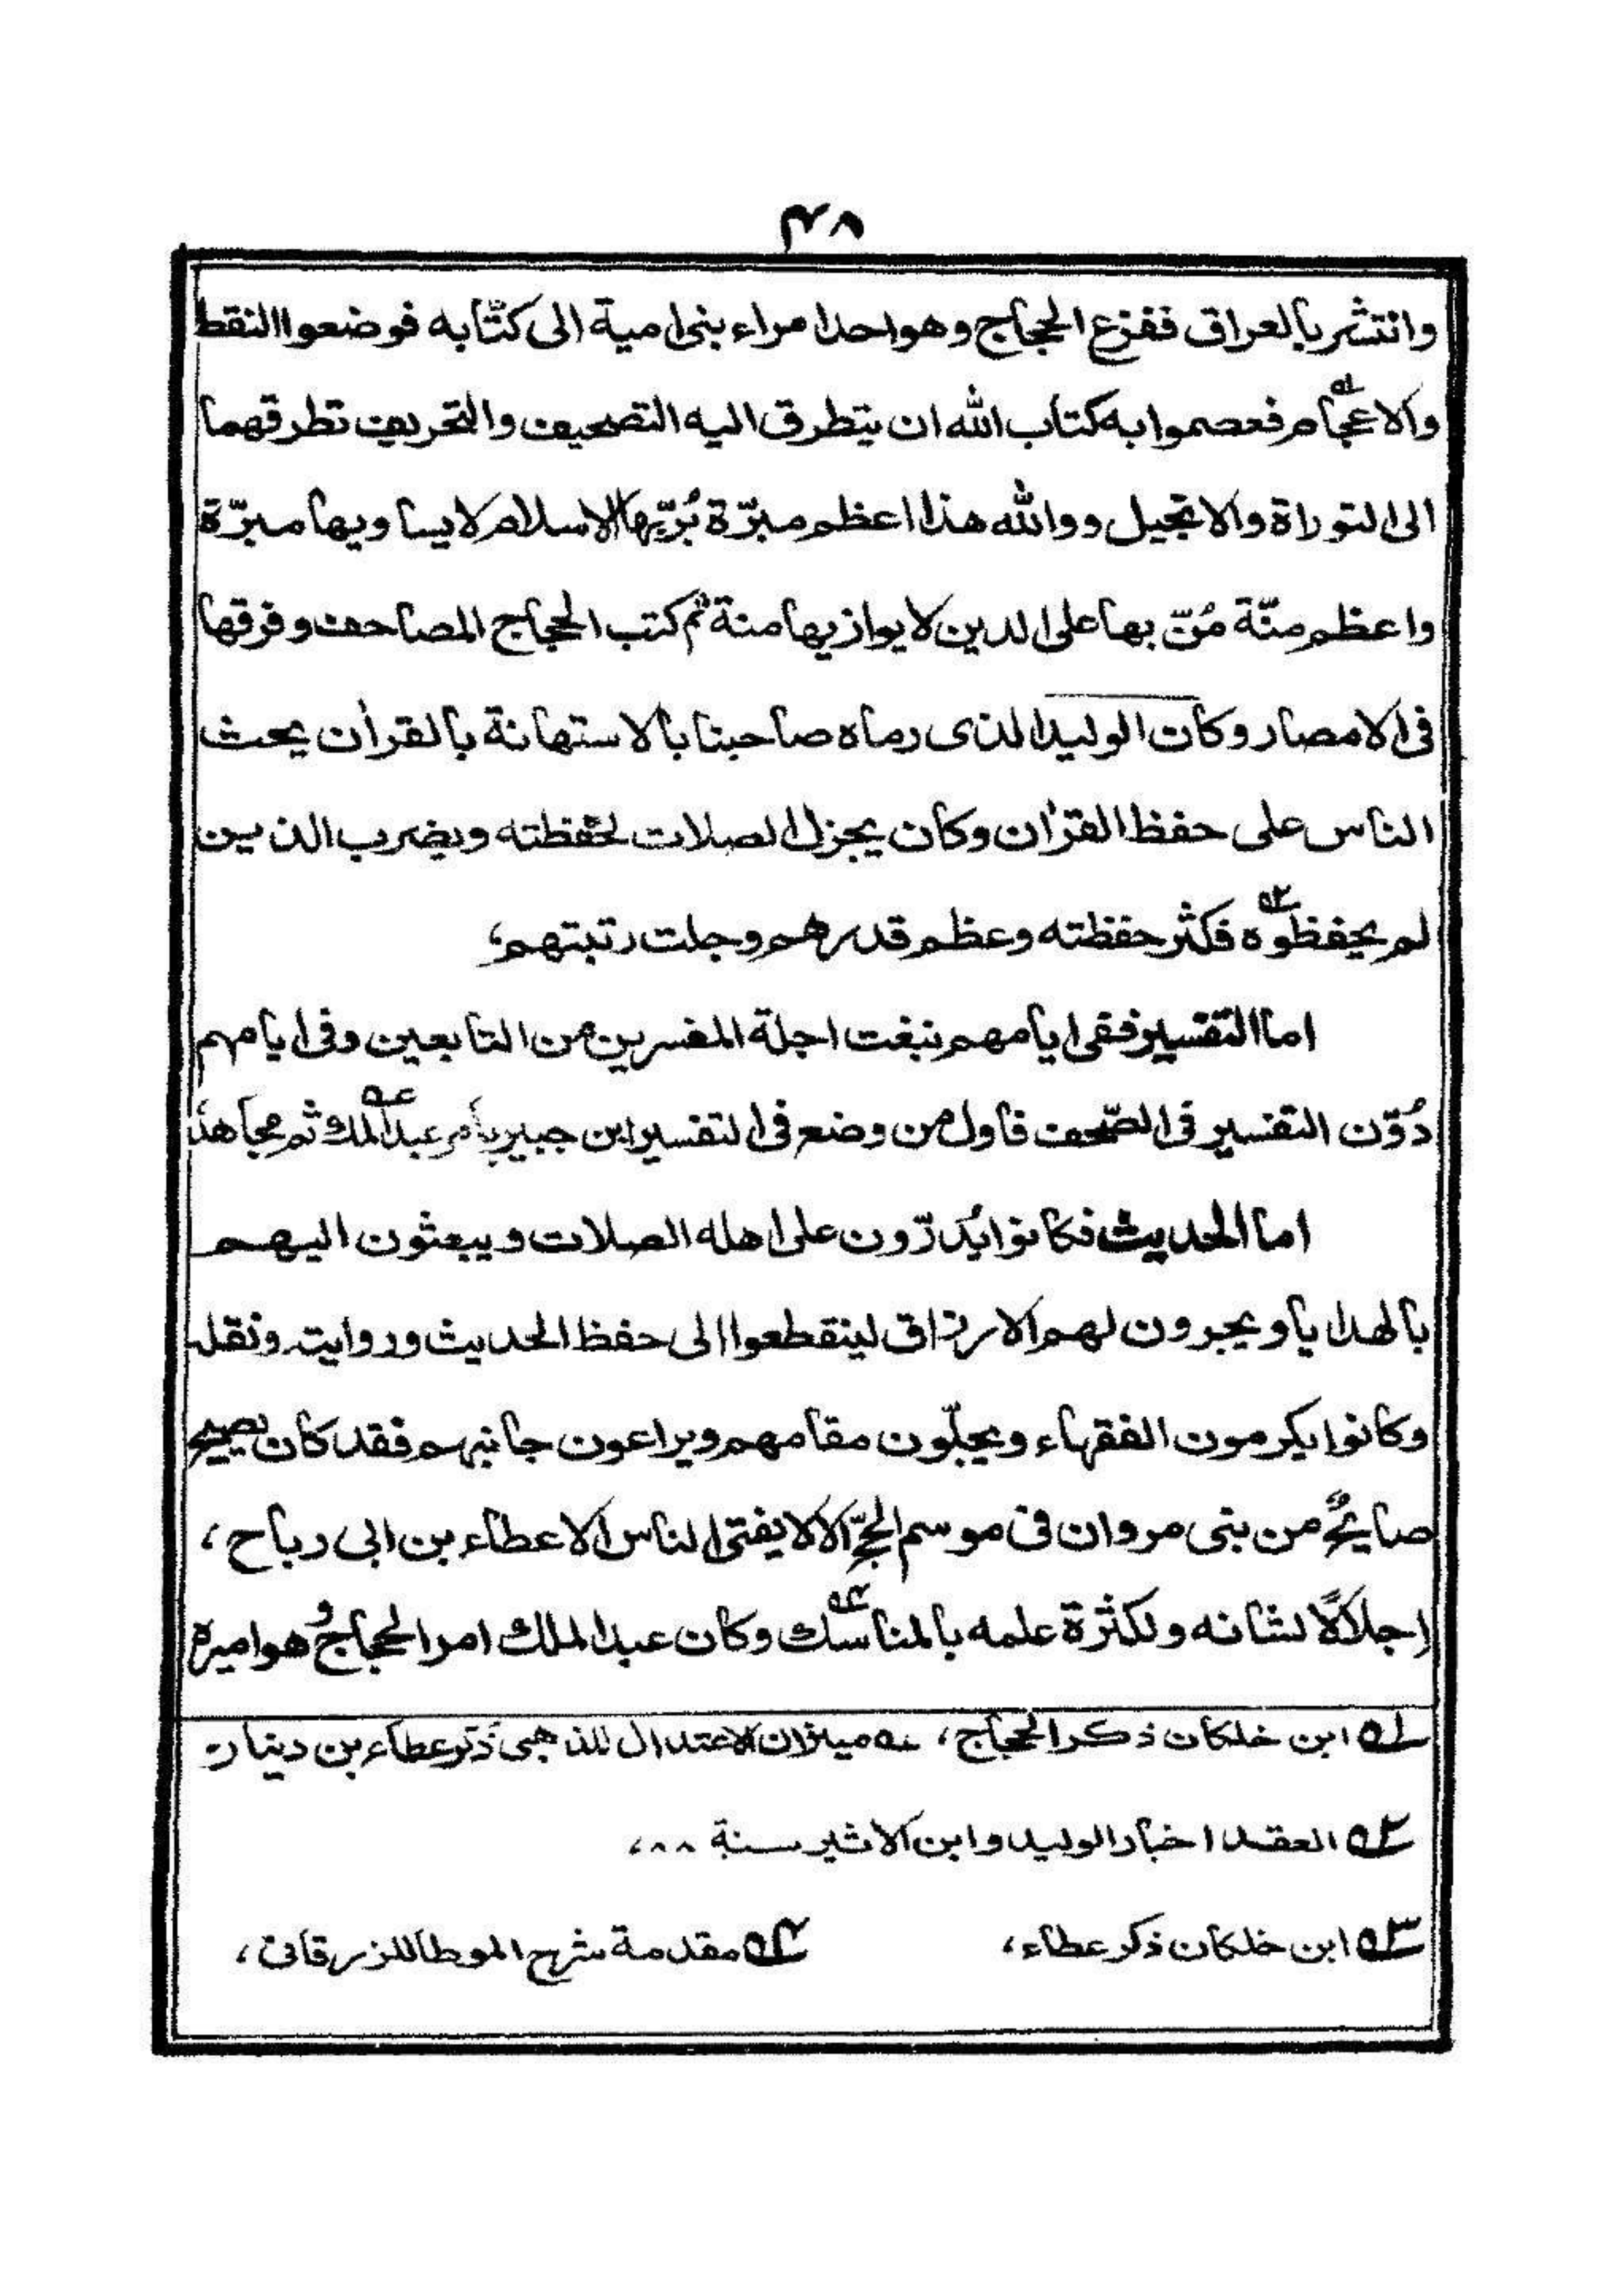 ۴۸
وانتشر بالعراق ففزع الحجاج وهو احد امراء بنی امیة الی کتّابه فوضعوا النقط
والاعجام۱ فعصموا به کتاب الله ان یتطرق الیه التصحیف والتحریف تطرقهما
الی التوراة والانجیل ووالله هذا اعظم مبرّة بُرّبها الاسلام لا یساویها مبرّة
واعظم منّة مُنّ بها علی الدین لا یوازیها منة ثم کتب الحجاج المصاحف وفرقها
فی الامصار وکان الولید الذی رماه صاحبنا بالاستهانة بالقرآن یحث
الناس علی حفظ القرآن وکان یجزل الصلات لحفظته ویضرب الذین
لم یحفظوه۲ فکثر حفظته وعظم قدرهم وجلت رتبتهم،
اما التفسیر ففی ایامهم نبغت اجلة المفسرین من التابعین وفی ایامهم
دُوّن التفسیر فی الصّحف فاول من وضع فی التفسیر ابن جبیر بامر عبد الملك ثم مجاهد
اما الحدیث فکانوا یُدرّون علی اهله الصلات ویبعثون الیهم
بالهدایا ویجرون لهم الارزاق لینقطعوا الی حفظ الحدیث وروایته ونقله
وکانوا یکرمون الفقهاء ویجلّون مقامهم ویراعون جانبهم فقد کان یصیح
صایحٌ من بنی مروان فی موسم الحجّ الا لا یفتی الناس الا عطاء بن ابی رباح،
اجلالًا لشانه ولکثرة علمه بالمناسك۳ وکان عبد الملك امر الحجاج وهو امیره
۱ ابن خلکان ذکر الحجاج، عه میزان الاعتدال للذهبی ذکر عطاء بن دینار
۲ العقد اخبار الولید وابن الاثیر سنة ۸۸،
۳ ابن خلکان ذکر عطاء، ۴ مقدمة شرح الموطا للزرقانی،